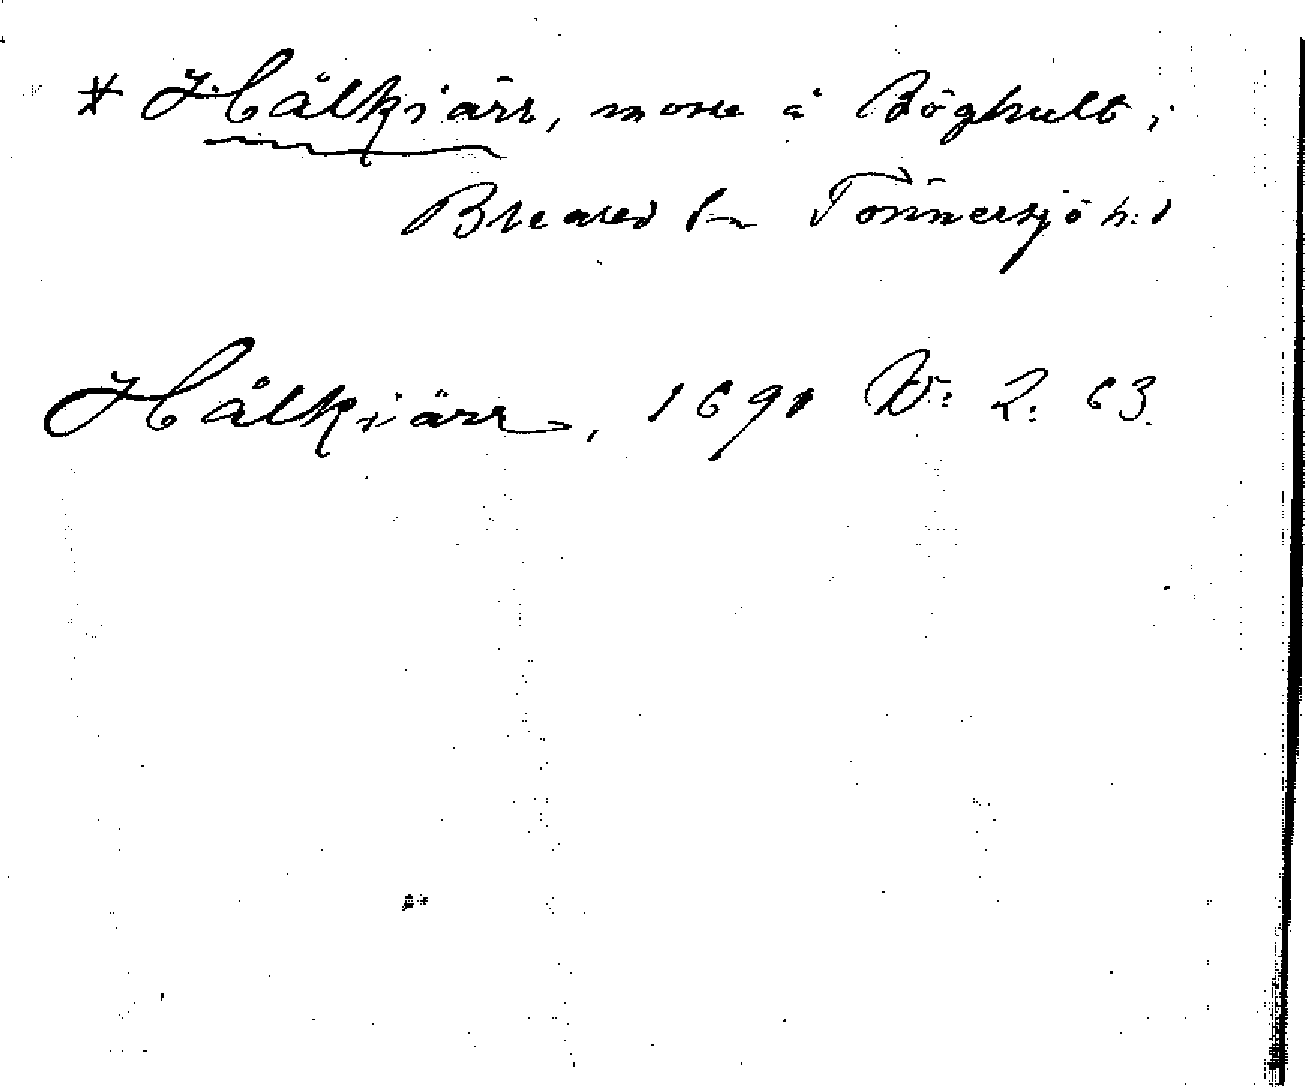 * Hålkiärr, mosse å Böghult i
Breared sn Tönnersjö h:d
Hålkiärr, 1691 W: 2: 63.